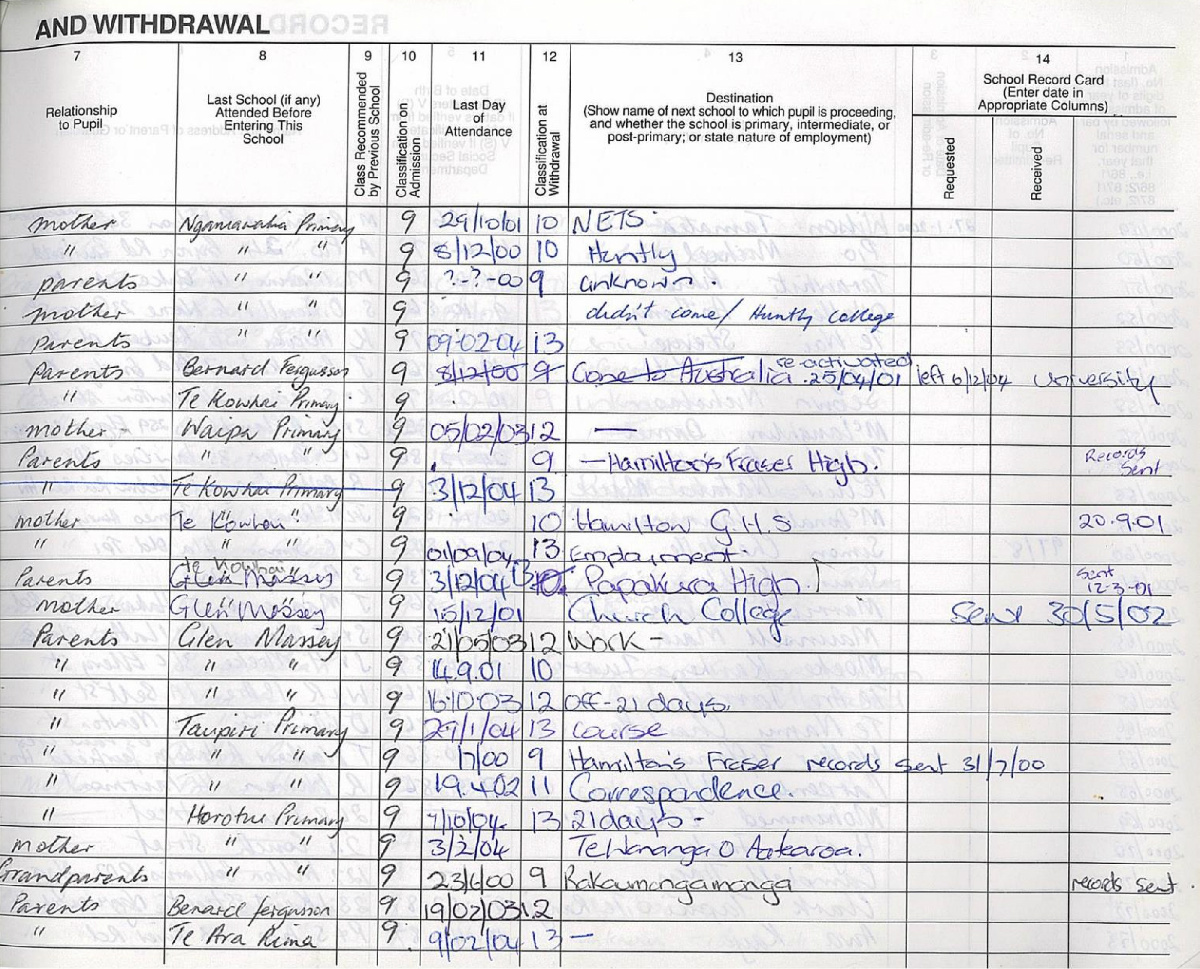 AND WITHDRAWAL
7 8 9 10 11 12 13 14
Relationship to Pupil
Last School (if any) Attended Before Entering This School
Class Recommended by Previous School
Classification on Admission
Last Day of Attendance
Classification at Withdrawal
Destination
(Show name of next school to which pupil is proceeding, and whether the school is primary, intermediate, or post-primary; or state nature of employment)
School Record Card
(Enter date in Appropriate Columns)
Requested
Received
mother Ngamarahia Primary 9 29/10/01 10 NETS.
" " " 9 8/12/00 10 Huntly
parents " " 9 ?-?-00 9 unknown.
mother " " 9 didn't come/ Huntly college
parents " " 9 09-02-04 13
Parents Bernard Fergusson 9 8/12/00 9 Gone to Australia. re-activated 25/04/01 left 6/12/04 University
" Te Kowhai Primary 9
mother Waipa Primary 9 05/02/03 12 —
Parents " " 9 9 - Hamilton's Fraser High. Records sent
" Te Kowhai Primary 9 3/12/04 13
mother Te Kowhai " 9 10 Hamilton G.H.S 20.9.01
" " " 9 01/09/04 13 Employment.
Parents Te Kowhai Glen Massey 9 3/12/04 13 10. Papakura High. sent 12-3-01
mother Glen Massey 9 15/12/01 Church College Sent 30/5/02
Parents Glen Massey 9 21/05/03 12 Work -
" " " 9 14.9.01 10
" " " 9 16.10.03 12 off-21 days.
" Taupiri Primary 9 29/1/04 13 course
" " " 9 /7/00 9 Hamilton's Fraser records sent 31/7/00
" " " 9 19.4.02 11 Correspondence.
" Horotiu Primary 9 7/10/04. 13 21 days -
mother " " 9 3/2/04 Te Wananga O Aotearoa.
Grandparents " " 9 23/6/00 9 Rakaumangamanga records sent
Parents Benard fergusson 9 19/02/03 12
" Te Ara Rima 9 9/02/04 13 —